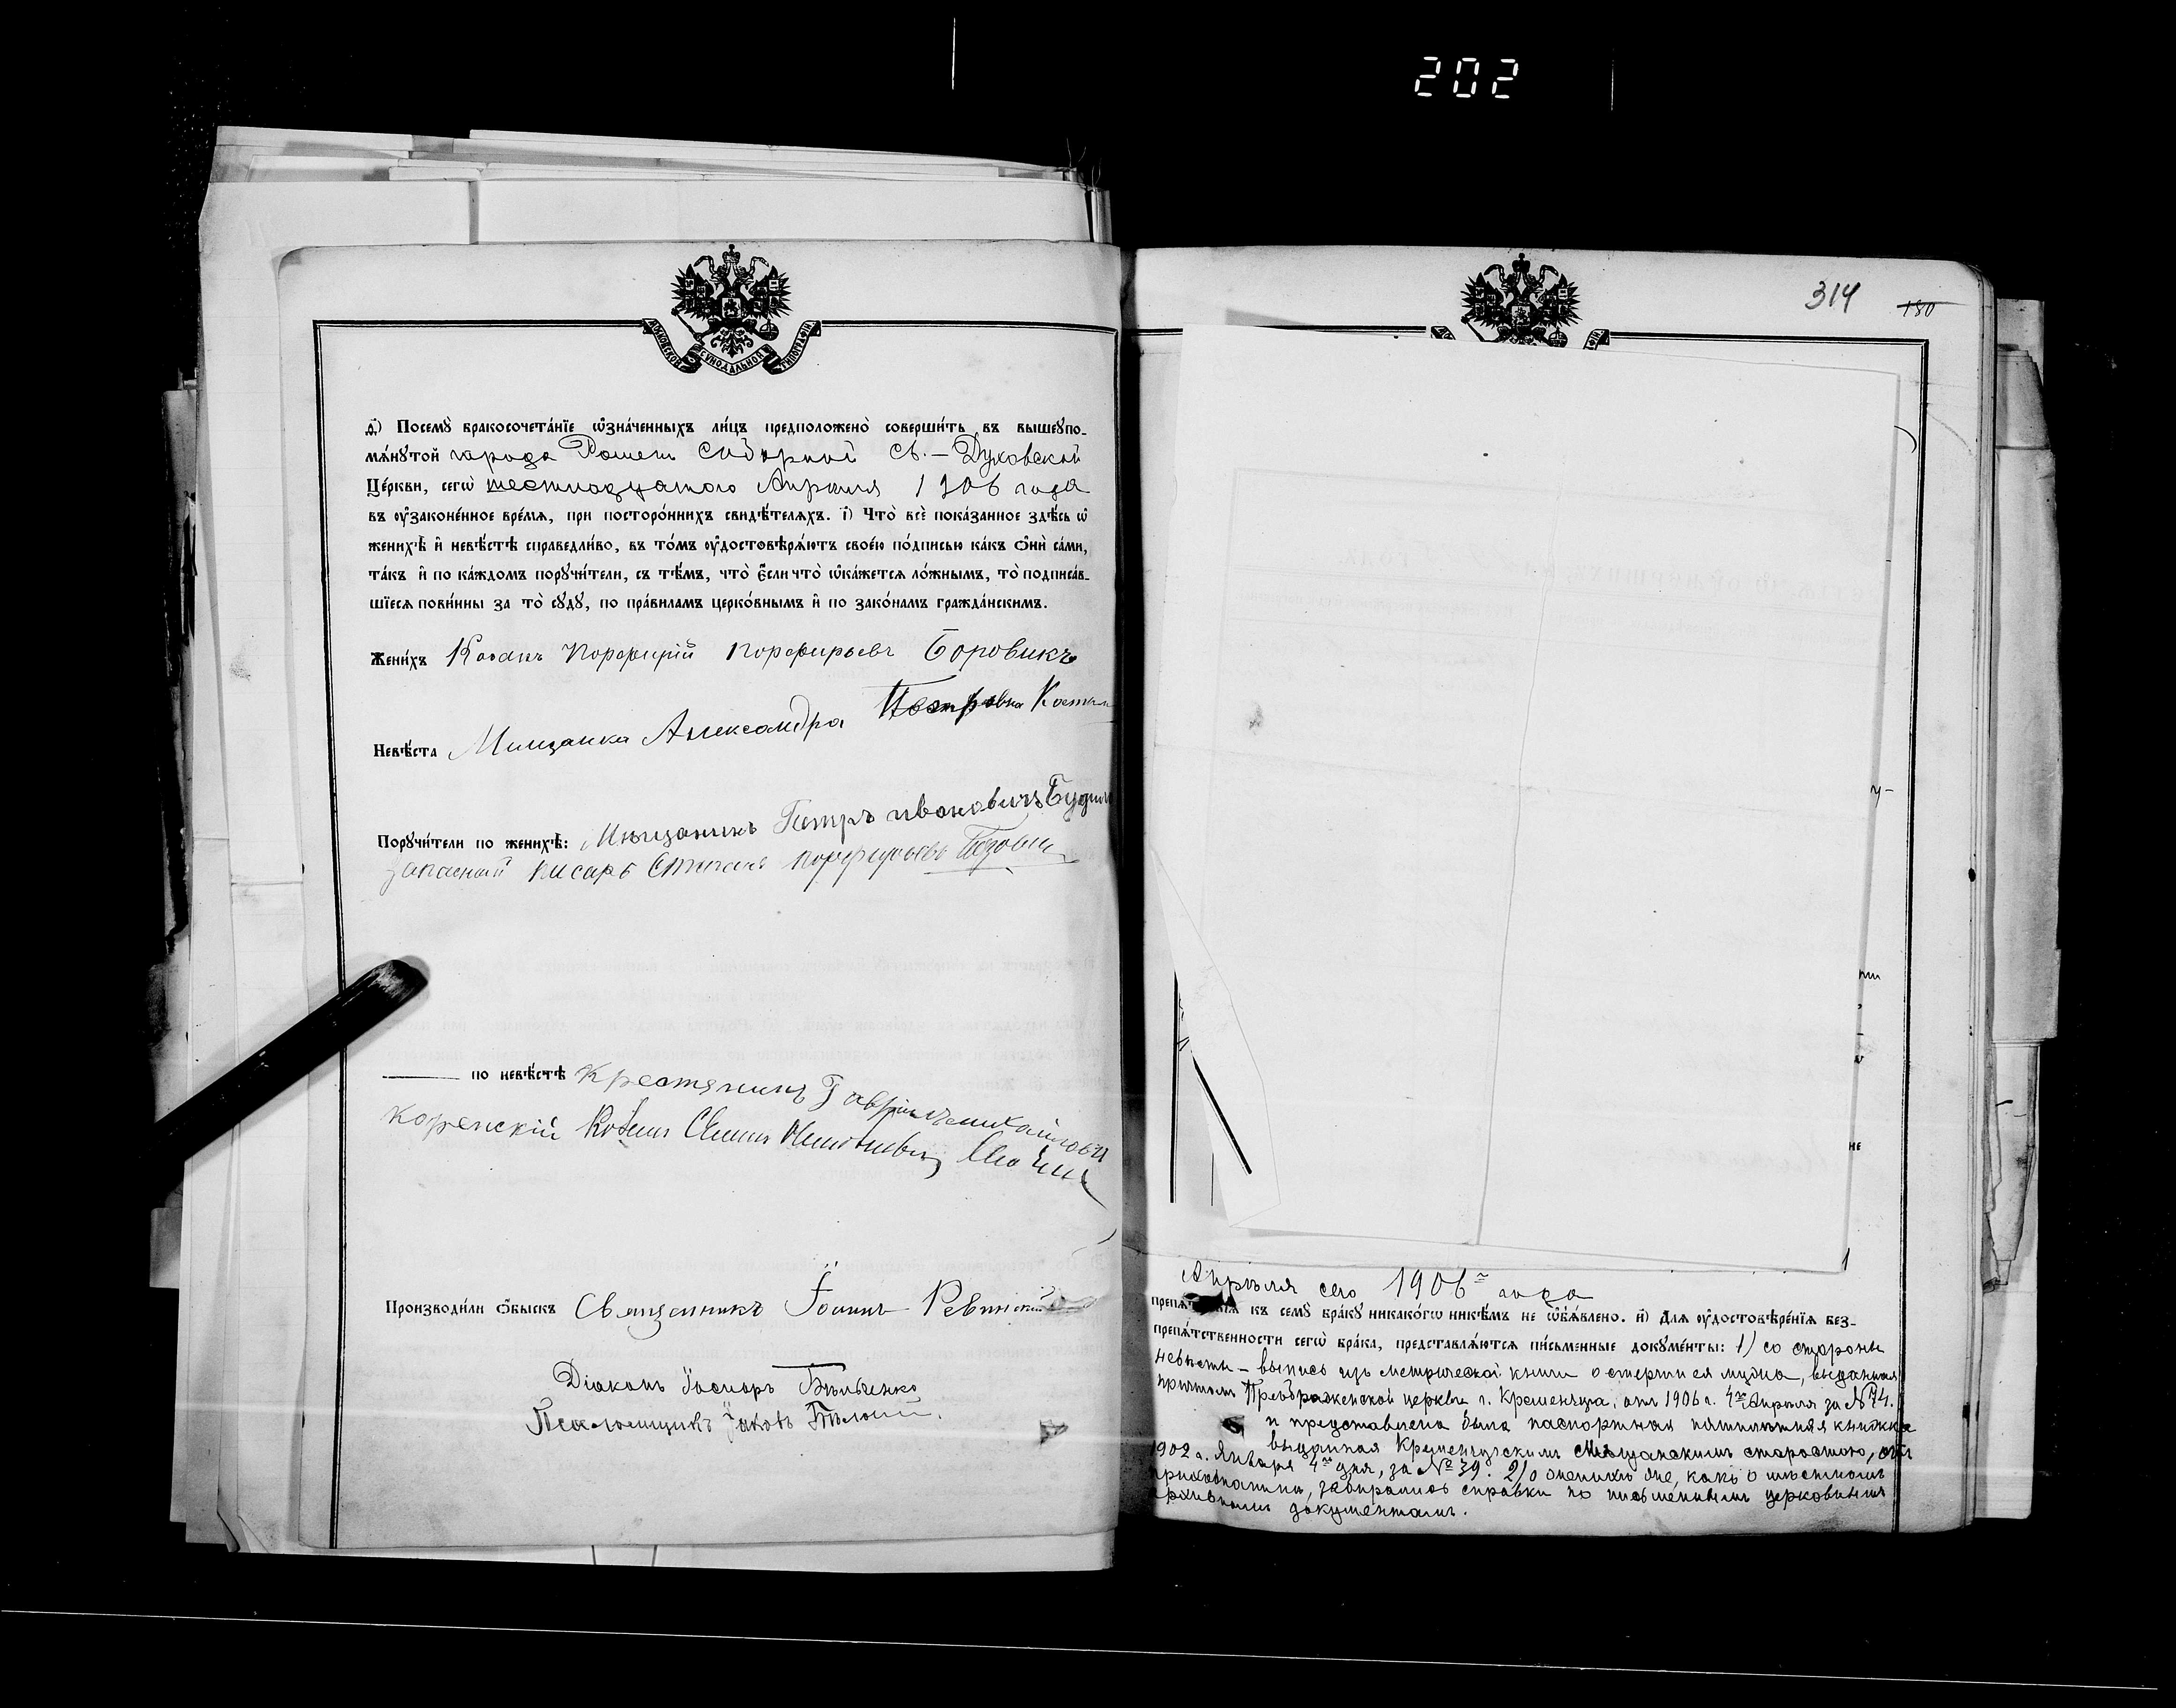 202
МОСКОВСКОЙ СѴНОДАЛЬНОЙ ТИПОГРАФІИ
ѳ҃) Посемꙋ̀ бракосочета́нїе ѡ҆зна́ченныхъ ли́цъ предположено̀ соверши́ть въ вышеꙋпо-
мѧ́нꙋтой города Ромен Соборной Св.-Духовской
Це́ркви, сегѡ̀ шестнадцатого Апреля 1906 года
въ ᲂу҆зако́ненное вре́мѧ, при посторо́ннихъ свидѣ́телѧхъ. і҃) Что̀ всѐ пока́занное здѣ́сь ѡ҆
женихѣ̀ и҆ невѣ́стѣ справедли́во, въ то́мъ ᲂу҆достовѣрѧ́ютъ свое́ю по́дписью ка́къ ѻ҆нѝ са́ми,
та́къ и҆ по ка́ждомъ порꙋчи́тели, съ тѣ́мъ, что̀ є҆́сли что̀ ѡ҆ка́жетсѧ ло́жнымъ, то̀ подписа́в-
шїесѧ пови́нны за то̀ сꙋдꙋ̀, по пра́виламъ церко́внымъ и҆ по зако́намъ гражда́нскимъ.
Жени́хъ Козакъ Порфирій Порфирьевъ Боровикъ
Невѣ́ста Мищанка Александра Петровна
Порꙋчи́тели по женихѣ̀: Мѣщанинъ Петръ ивановичъ
Запасный писарь Степанъ порфирьевъ
по невѣ́стѣ Крестянинъ Гавріилъ михайловичъ
коренскій Козакъ
Производи́ли ѻ҆́быскъ Священникъ Іоаннъ
Діаконъ Іосифъ Бѣльченко
Псаломщикъ Іаковъ Бѣлый.
314 180
у-
ти
не
Апрѣля сего 1906 года
препѧ́тствїѧ къ семꙋ̀ бра́кꙋ никако́гѡ никѣ́мъ не ѡ҆б̾ѧ́влено. и҃) Длѧ ᲂу҆достовѣре́нїѧ без-
препѧ́тственности сегѡ̀ бра́ка, представлѧ́ютсѧ пи́сьменные докꙋме́нты: 1) со стороны
невѣсты - выпись изъ метрической книги о смерти ея мужа, выданная
причтомъ Преображенской церкви г. Кременчуга, отъ 1906 г. 4го Апреля за № 74.
и представлена была паспортная пятилѣтняя книжка
выданная Кременчугскимъ Мѣщанскимъ старостою, отъ
1902 г. Января 4го дня, за № 39. 2) о женихѣ же, какъ о мѣстномъ
прихожанинѣ, забирались справки по письменнымъ церковнымъ
документамъ.